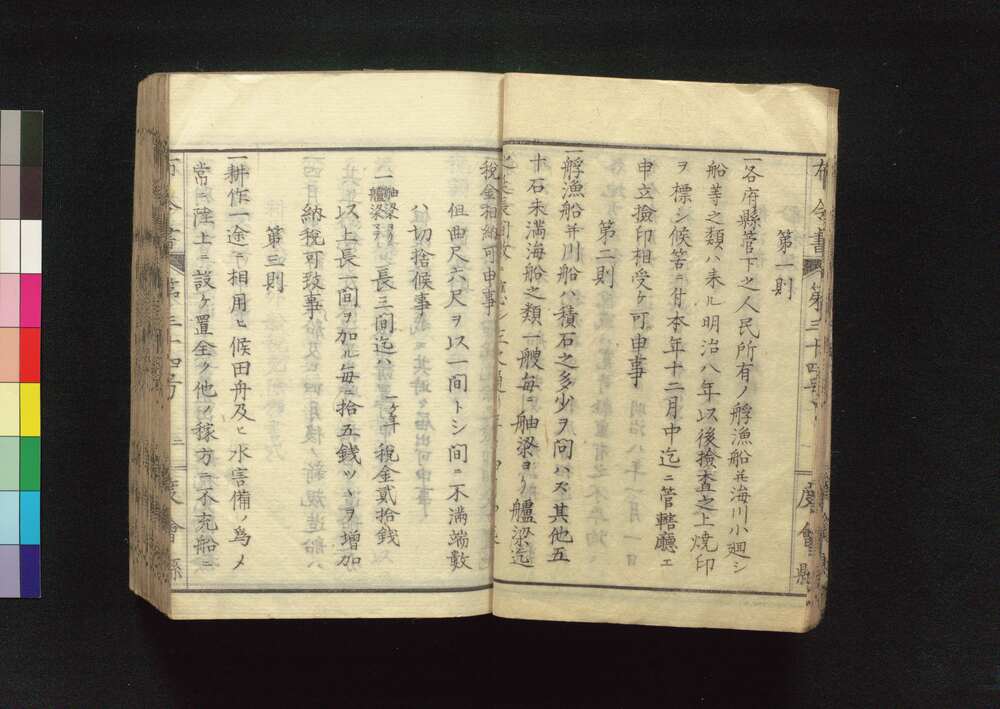 布令書 第三十四号 一 度會縣
第一則
一各府縣管下之人民所有ノ艀漁船并海川小廻シ
船等之類ハ来ル明治八年以後撿査之上焼印
ヲ標シ候筈ニ付本年十二月中迄ニ管轄廳エ
申立撿印相受ケ可申事
第二則
一艀漁船并川船ハ積石之多少ヲ問ハズ其他五
十石未満海船之類一艘毎ニ舳梁ヨリ艫梁迄
税金相納可申事
但曲尺六尺ヲ以一間トシ間ニ不満端數
ハ切捨候事
一舳梁ヨリ艫梁マテ長三間迄ハ一ケ年税金貳拾錢
以上長一間ヲ加ル毎ニ拾五錢ツヽヲ増加
納税可致事
第三則
一耕作一途ニ相用ヒ候田舟及ヒ水害備ノ爲メ
常ニ陸上ニ設ケ置全ク他ノ稼方ニ不充船ニ
布令書 第三十四号 二 度會縣